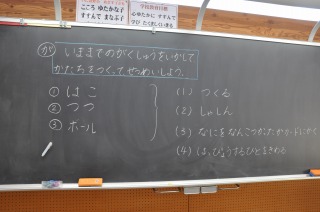 こころ ゆたかな子
すすんで まなぶ子
学校教育目標
心ゆたかに すすんで
学び たくましくいきる
が いままでのがくしゅうをいかして
かたちをつくってせつめいしよう。
① はこ
② つつ
③ ボール
(1) つくる
(2) しゃしん
(3) なにをなんこつかったかカードにかく
(4) はっぴょうするひとをきめる